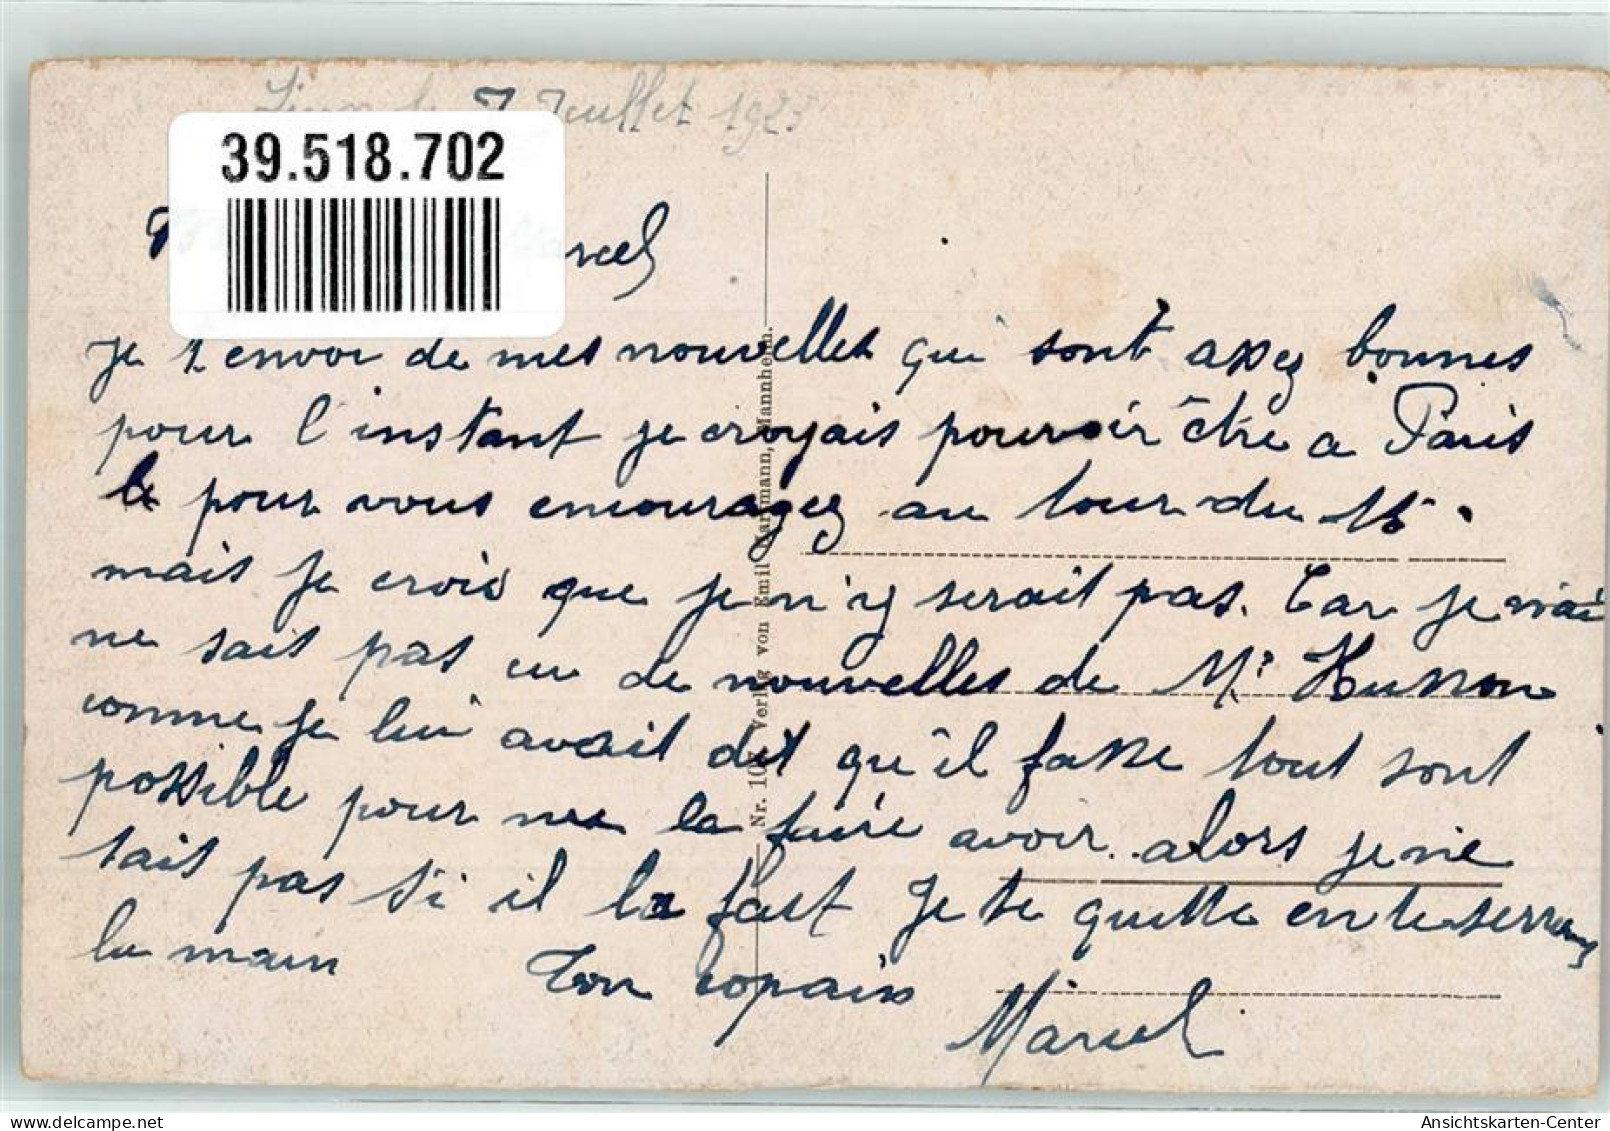 le 7 Juillet 1923
39.518.702
Marcel
je t'envoi de mes nouvelles qui sont assez bonnes
pour l'instant je croyais pouvoir être a Paris
le pour vous encouragez au tour du 15.
mais je crois que je n'y serait pas. Car je n'ai
ne sait pas eu de nouvelles de Mr Husson
comme je lui avait dit qu'il fasse tout sont
possible pour me la faire avoir. alors je ne
sait pas si il la fait Je te quitte en te serrant
la main Ton copain
Marcel
Verlag von Emil Hartmann, Mannheim.
Ansichtskarten-Center